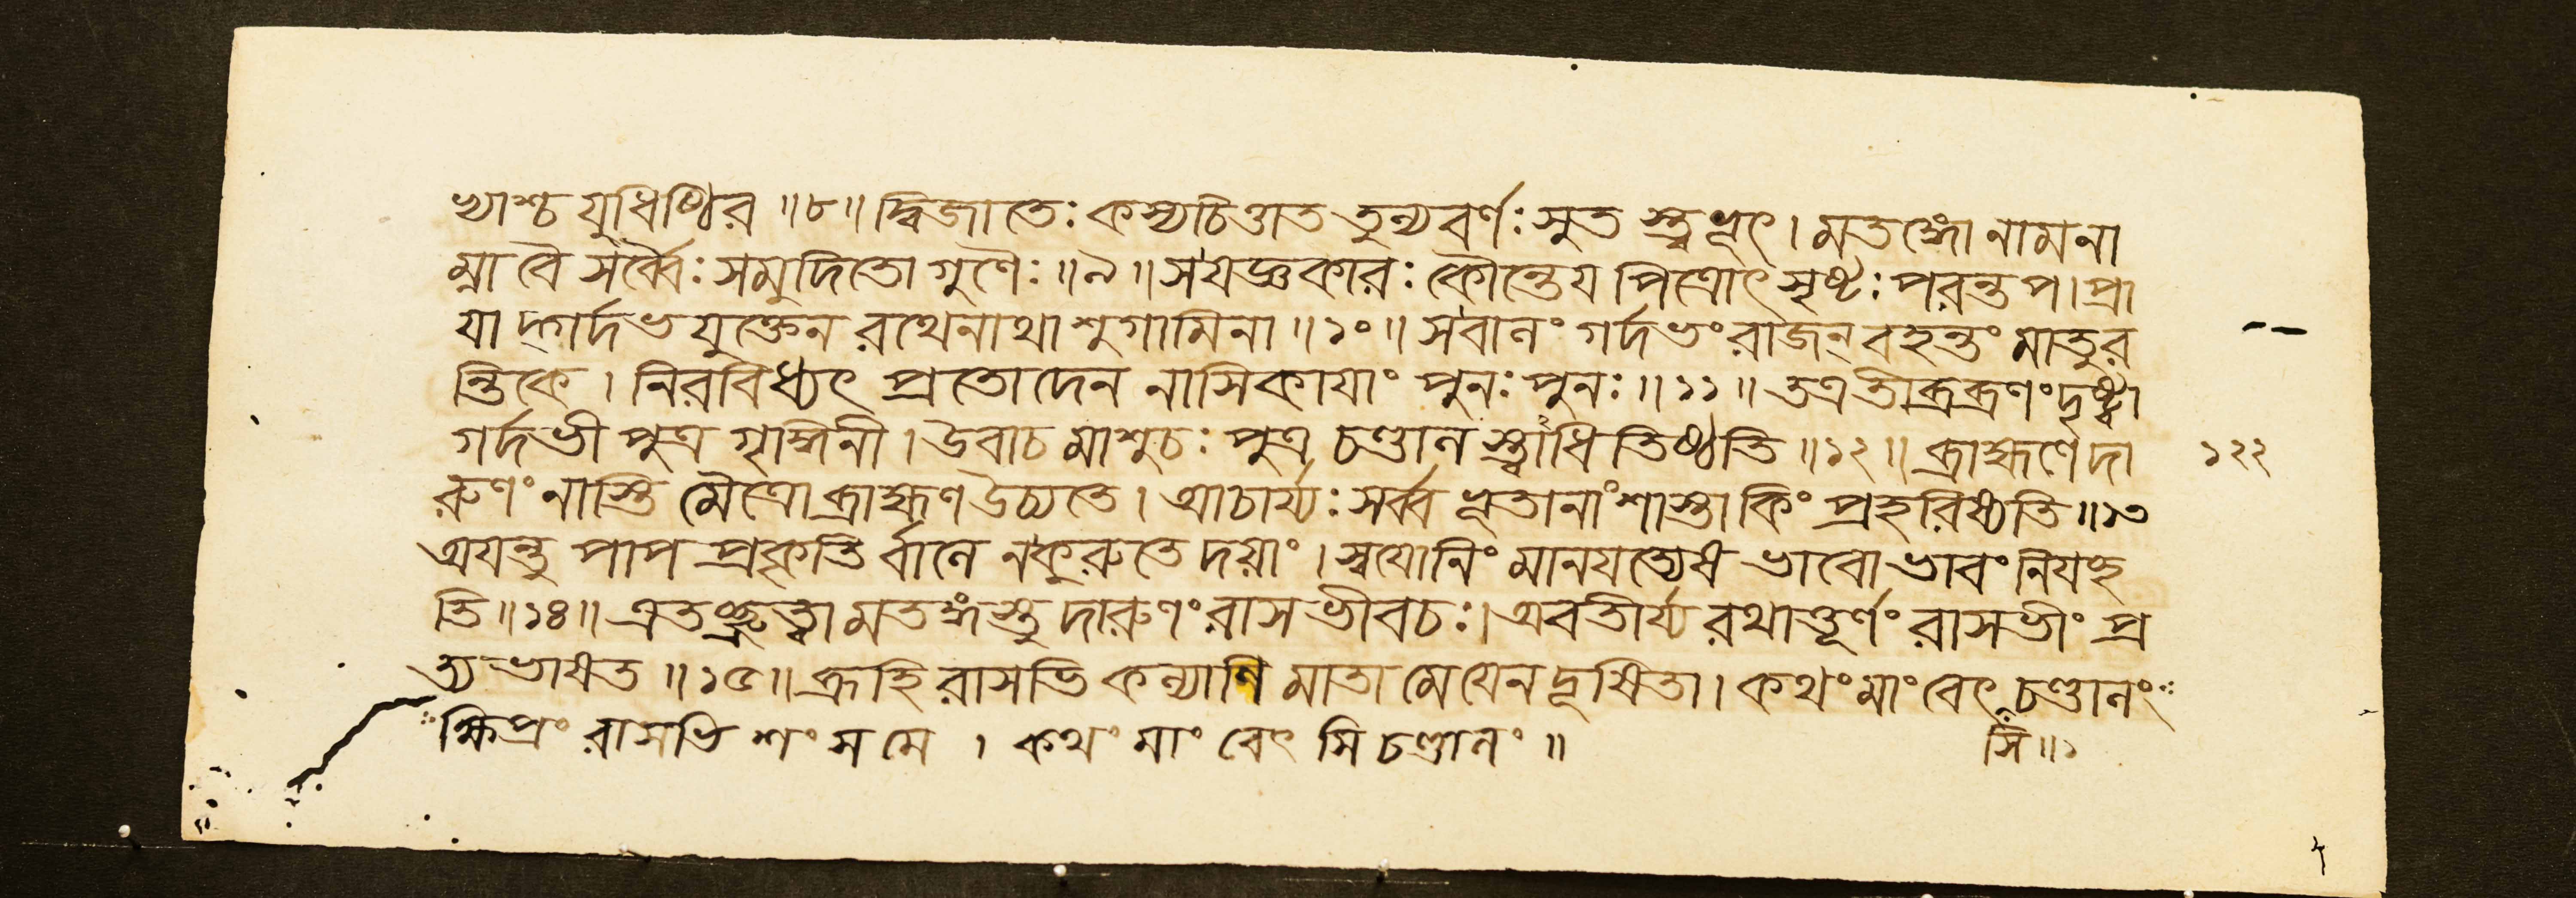 খ্যাশ্চ যুধিষ্ঠির ॥৮॥ দ্বিজাতেঃ কস্যচিত্তাত তুল্যবর্ণঃ সুত স্ত্বভূৎ । মতঙ্গো নামনা
ম্না বৈ সর্ব্বৈঃ সমুদিতো গুণৈঃ ॥৯॥ স যজ্ঞকারঃ কৌন্তেয পিত্রোৎসৃষ্টঃ পরন্তপ । প্রা
যা দ্গর্দভ যুক্তেন রথেনাথা শুগামিনা ॥১০॥ স বালং গর্দভং রাজন্ বহন্তং মাতুর
ন্তিকে । নিরবিধ্যৎ প্রতোদেন নাসিকাযাং পুনঃ পুনঃ ॥১১॥ তত্র তীব্রব্রণং দৃষ্ট্বা
গর্দভী পুত্র গৃদ্ধিনী । উবাচ মাশুচঃ পুত্র চণ্ডাল স্ত্বাধি তিষ্ঠতি ॥১২॥ ব্রাহ্মণে দা
রুণং নাস্তি মৈত্রো ব্রাহ্মণ উচ্যতে । আচার্য্যঃ সর্ব্ব ভূতানাং শাস্তা কিং প্রহরিষ্যতি ॥১৩
অযন্তু পাপ প্রকৃতি র্বালে ন কুরুতে দয়াং । স্বযোনিং মানযত্যেষ ভাবো ভাবং নিযচ্ছ
তি ॥১৪॥ এতচ্ছ্রুত্বা মতঙ্গস্তু দারুণং রাসভীবচঃ । অবতীর্য্য রথাত্তূর্ণং রাসভীং প্র
ত্যভাষত ॥১৫॥ ব্রূহি রাসভি কল্যাণি মাতা মে যেন দূষিতা । কথং মাং বেৎ চণ্ডালং
১২২
ক্ষিপ্রং রাসভি শংস মে । কথং মাং বেৎসি চণ্ডালং ॥
সি ॥১